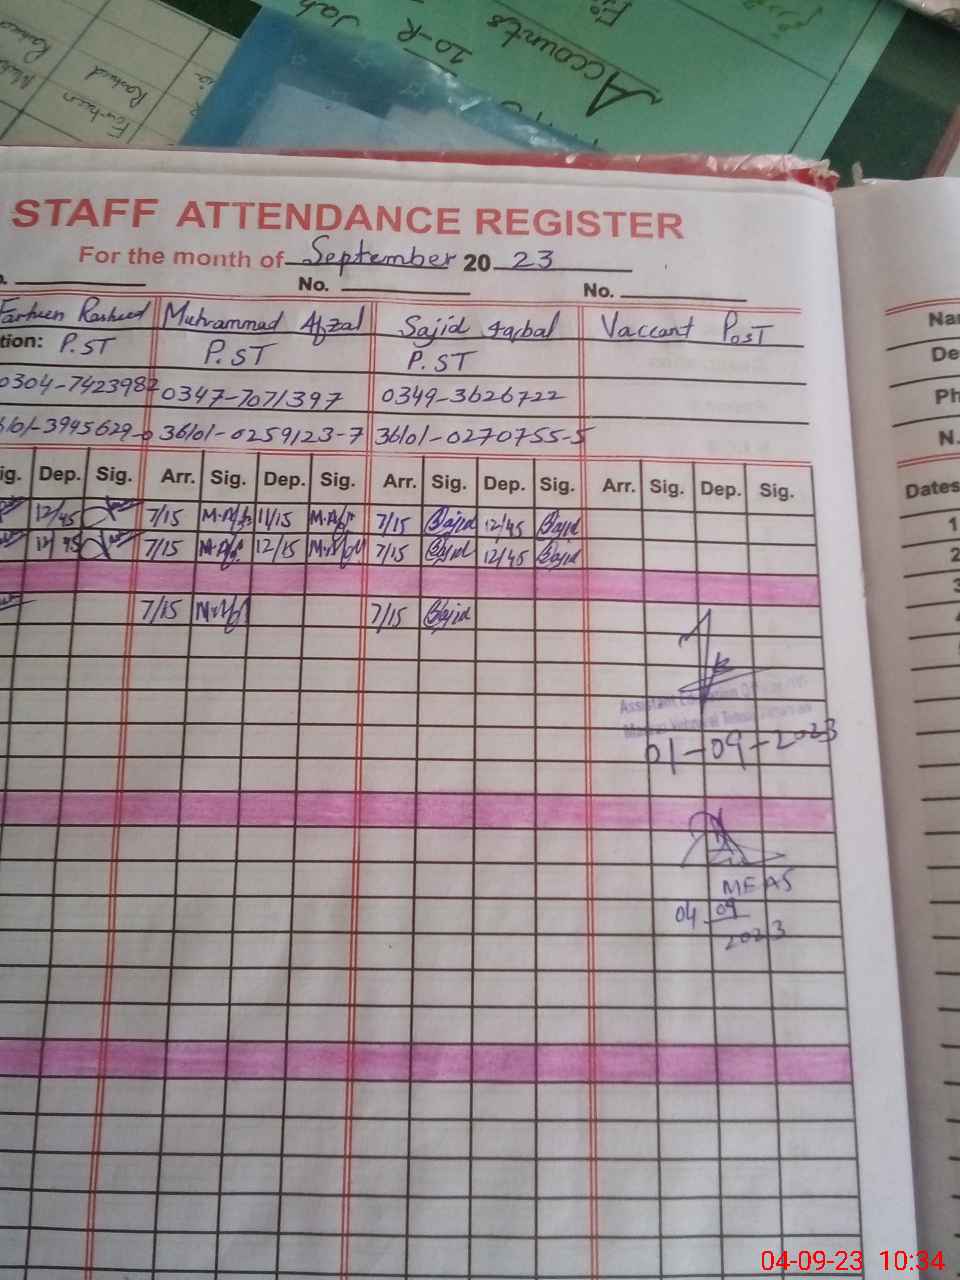 Accounts
10-R
Jah
Farheen
Rasheed
STAFF ATTENDANCE REGISTER
For the month of September 20 23
No. No.
Farheen Rasheed Muhrammad Afzal Sajid Iqbal Vaccant PosT
tion: P.ST P.ST P.ST
0304-7423982 0347-7071397 0349-3626722
36101-0259123-7 36101-0270755-5
ig. Dep. Sig. Arr. Sig. Dep. Sig. Arr. Sig. Dep. Sig. Arr. Sig. Dep. Sig.
12/45 7/15 11/15 7/15 Sajid 12/45 Sajid
12/45 7/15 12/15 7/15 Sajid 12/45 Sajid
7/15 7/15 Sajid
Assistant Education Officer
01-09-2023
MEAS
04 09
2023
Nam
De
Ph
N.
Dates
1
2
3
04-09-23 10:34